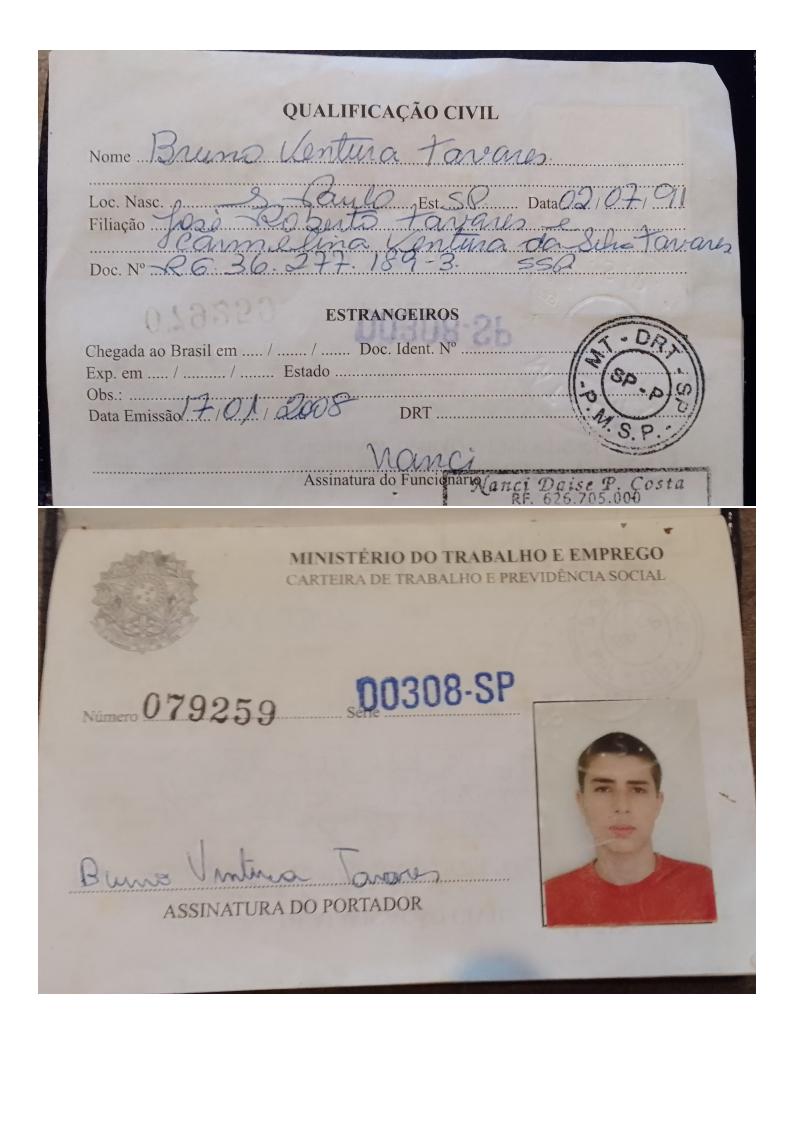 QUALIFICAÇÃO CIVIL
Nome Bruno Ventura Tavares
Loc. Nasc. S. Paulo Est. SP Data 02/07/91
Filiação José Roberto Tavares e
Carmelina Ventura da Silva Tavares
Doc. Nº RG. 36.277.189-3. SSP
079259 00308-SP
ESTRANGEIROS
Chegada ao Brasil em ..... / ....... / ...... Doc. Ident. Nº
Exp. em ..... / .......... / ........ Estado
Obs.:
Data Emissão 17/01/2008 DRT
MT - DRT - SP
SP - P
- P.M.S.P. -
Nanci
Assinatura do Funcionário
Nanci Daise P. Costa
RF. 626.705.000
MINISTÉRIO DO TRABALHO E EMPREGO
CARTEIRA DE TRABALHO E PREVIDÊNCIA SOCIAL
Número 079259 Série 00308-SP
Bruno Ventura Tavares
ASSINATURA DO PORTADOR